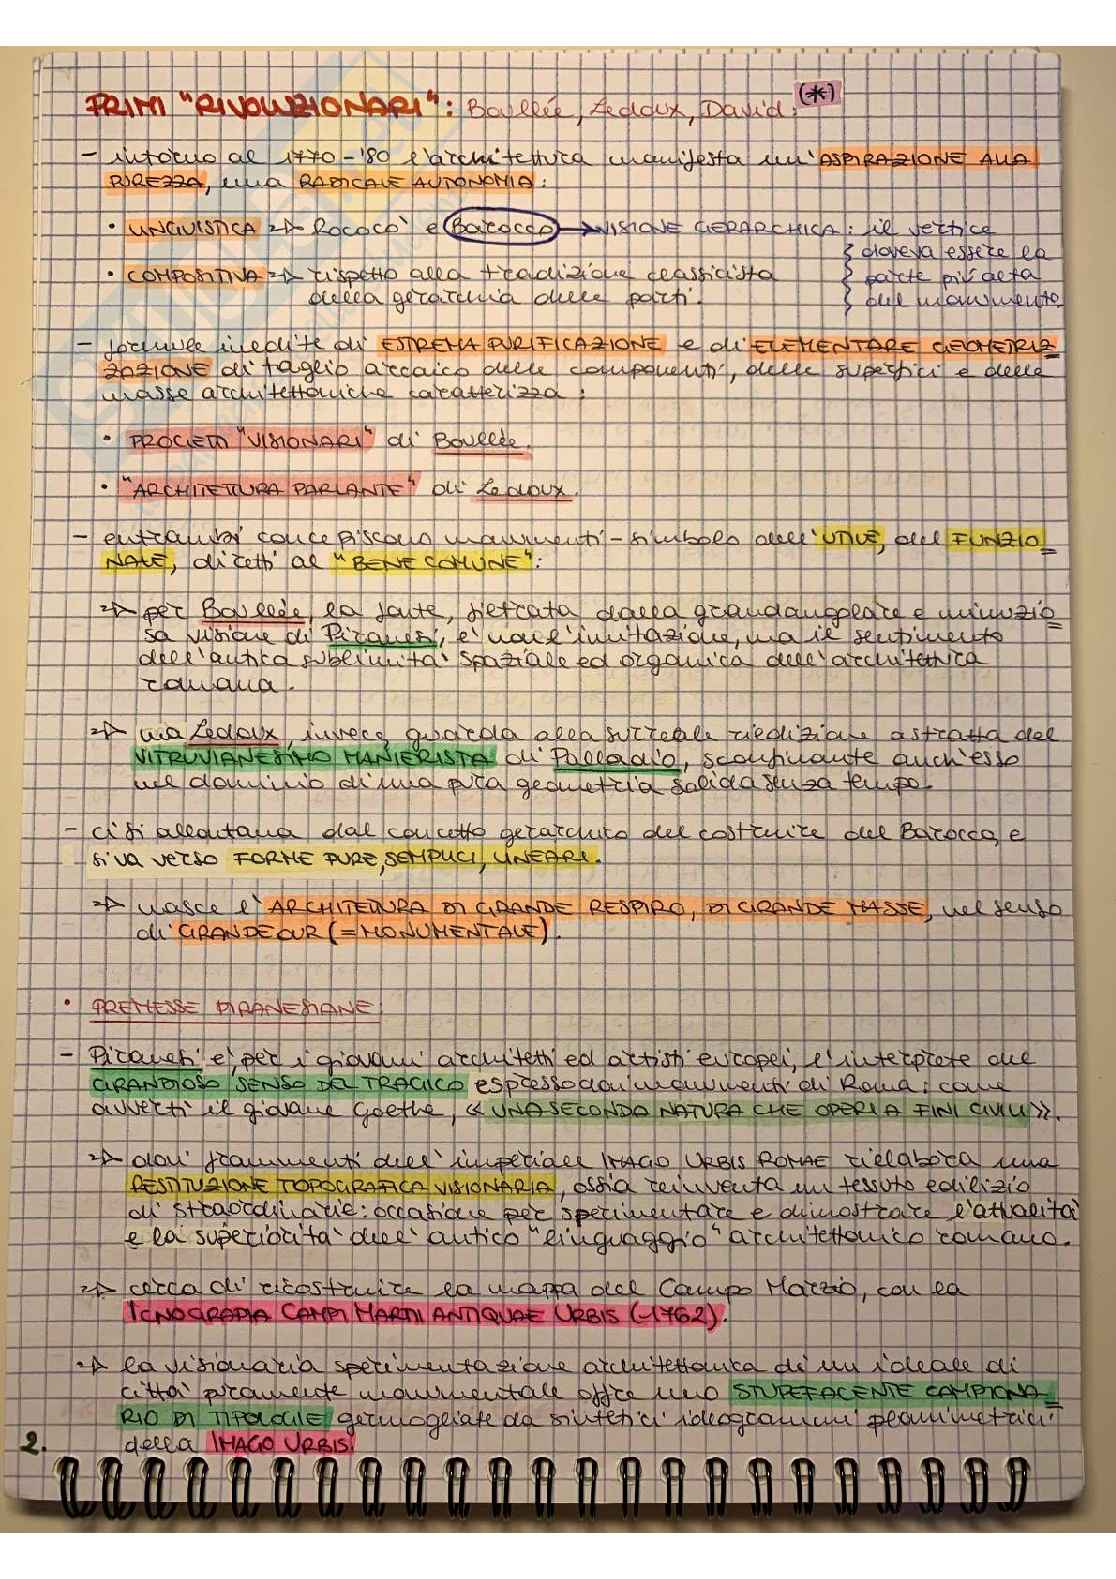 PRIMI "RIVOLUZIONARI": Boullée, Ledoux, David. (*)
- intorno al 1770-'80 l'architettura manifesta un'ASPIRAZIONE ALLA
PUREZZA, una RADICALE AUTONOMIA:
• LINGUISTICA => Rococò e Barocco → VISIONE GERARCHICA: il vertice
doveva essere la
• COMPOSITIVA => rispetto alla tradizione classicista parte più alta
della gerarchia delle parti. del monumento
- formule inedite di ESTREMA PURIFICAZIONE e di ELEMENTARE GEOMETRIZ=
ZAZIONE di taglio arcaico delle componenti, delle superfici e delle
masse architettoniche caratterizza:
• PROGETTI "VISIONARI" di Boullée.
• "ARCHITETTURA PARLANTE" di Ledoux.
- entrambi concepiscono monumenti-simbolo dell'UTILE, del FUNZIO=
NALE, diretti al "BENE COMUNE":
=> per Boullée, la fonte, filtrata dalla grandangolare e minuzio=
sa visione di Piranesi, è non l'imitazione, ma il sentimento
dell'antica sublimità spaziale ed organica dell'architettura
romana.
=> ma Ledoux, invece, guarda alla surreale riedizione astratta del
VITRUVIANESIMO MANIERISTA di Palladio, sconfinante anch'esso
nel dominio di una pura geometria solida senza tempo.
- ci si allontana dal concetto gerarchico del costruire del Barocco, e
si va verso FORME PURE, SEMPLICI, LINEARI.
=> nasce l'ARCHITETTURA DI GRANDE RESPIRO, DI GRANDE MASSE, nel senso
di GRANDEUR (=MONUMENTALE).
• PREMESSE PIRANESIANE:
- Piranesi è, per i giovani architetti ed artisti europei, l'interprete del
GRANDIOSO SENSO DEL TRAGICO espresso dai monumenti di Roma: come
avvertì il giovane Goethe, «UNA SECONDA NATURA CHE OPERI A FINI CIVILI».
=> dai frammenti dell'imperiale IMAGO URBIS ROMAE rielabora una
RESTITUZIONE TOPOGRAFICA VISIONARIA, ossia reinventa un tessuto edilizio
di straordinarie: occasione per sperimentare e dimostrare l'attualità
e la superiorità dell'antico "linguaggio" architettonico romano.
=> cerca di ricostruire la mappa del Campo Marzio, con la
ICNOGRAFIA CAMPI MARTII ANTIQUAE URBIS (-1762).
=> la visionaria sperimentazione architettonica di un ideale di
città puramente monumentale offre uno STUPEFACENTE CAMPIONA=
RIO DI TIPOLOGIE germogliate da sintetici ideogrammi planimetrici
della IMAGO URBIS.
2.